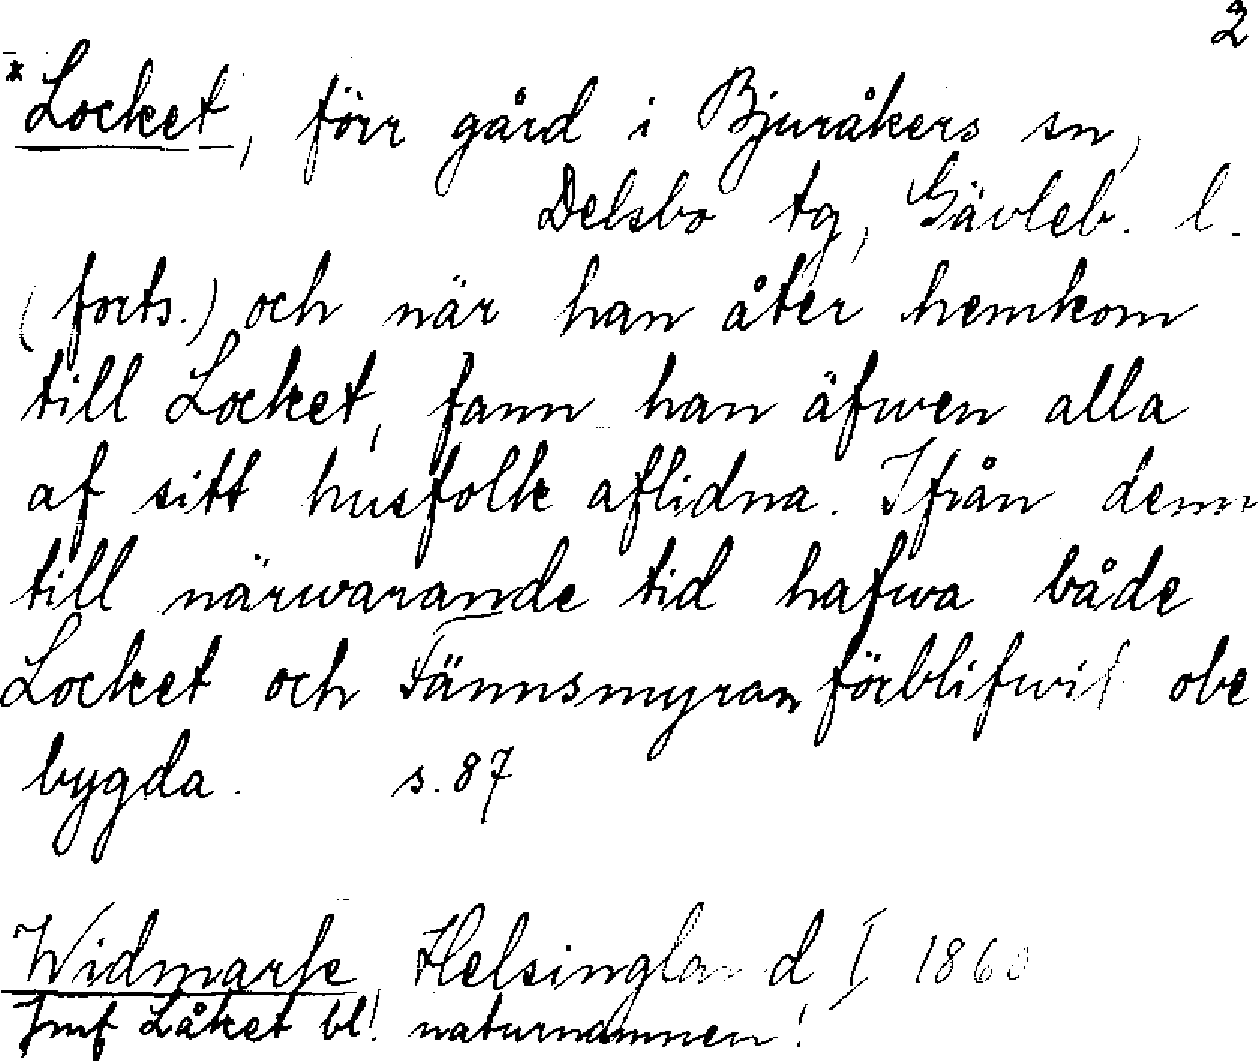 2
*Locket, förr gård i Bjuråkers sn,
Delsbo tg, Gävleb. l.
(forts.) och när han åter hemkom
till Locket, fann han äfwen alla
af sitt husfolk aflidna. Ifrån denn
till närwarande tid hafwa både
Locket och Fännsmyran förblifwit obe
bygda. s. 87
Widmark, Helsingland I 1860
Jmf Låket bl. naturnamnen!